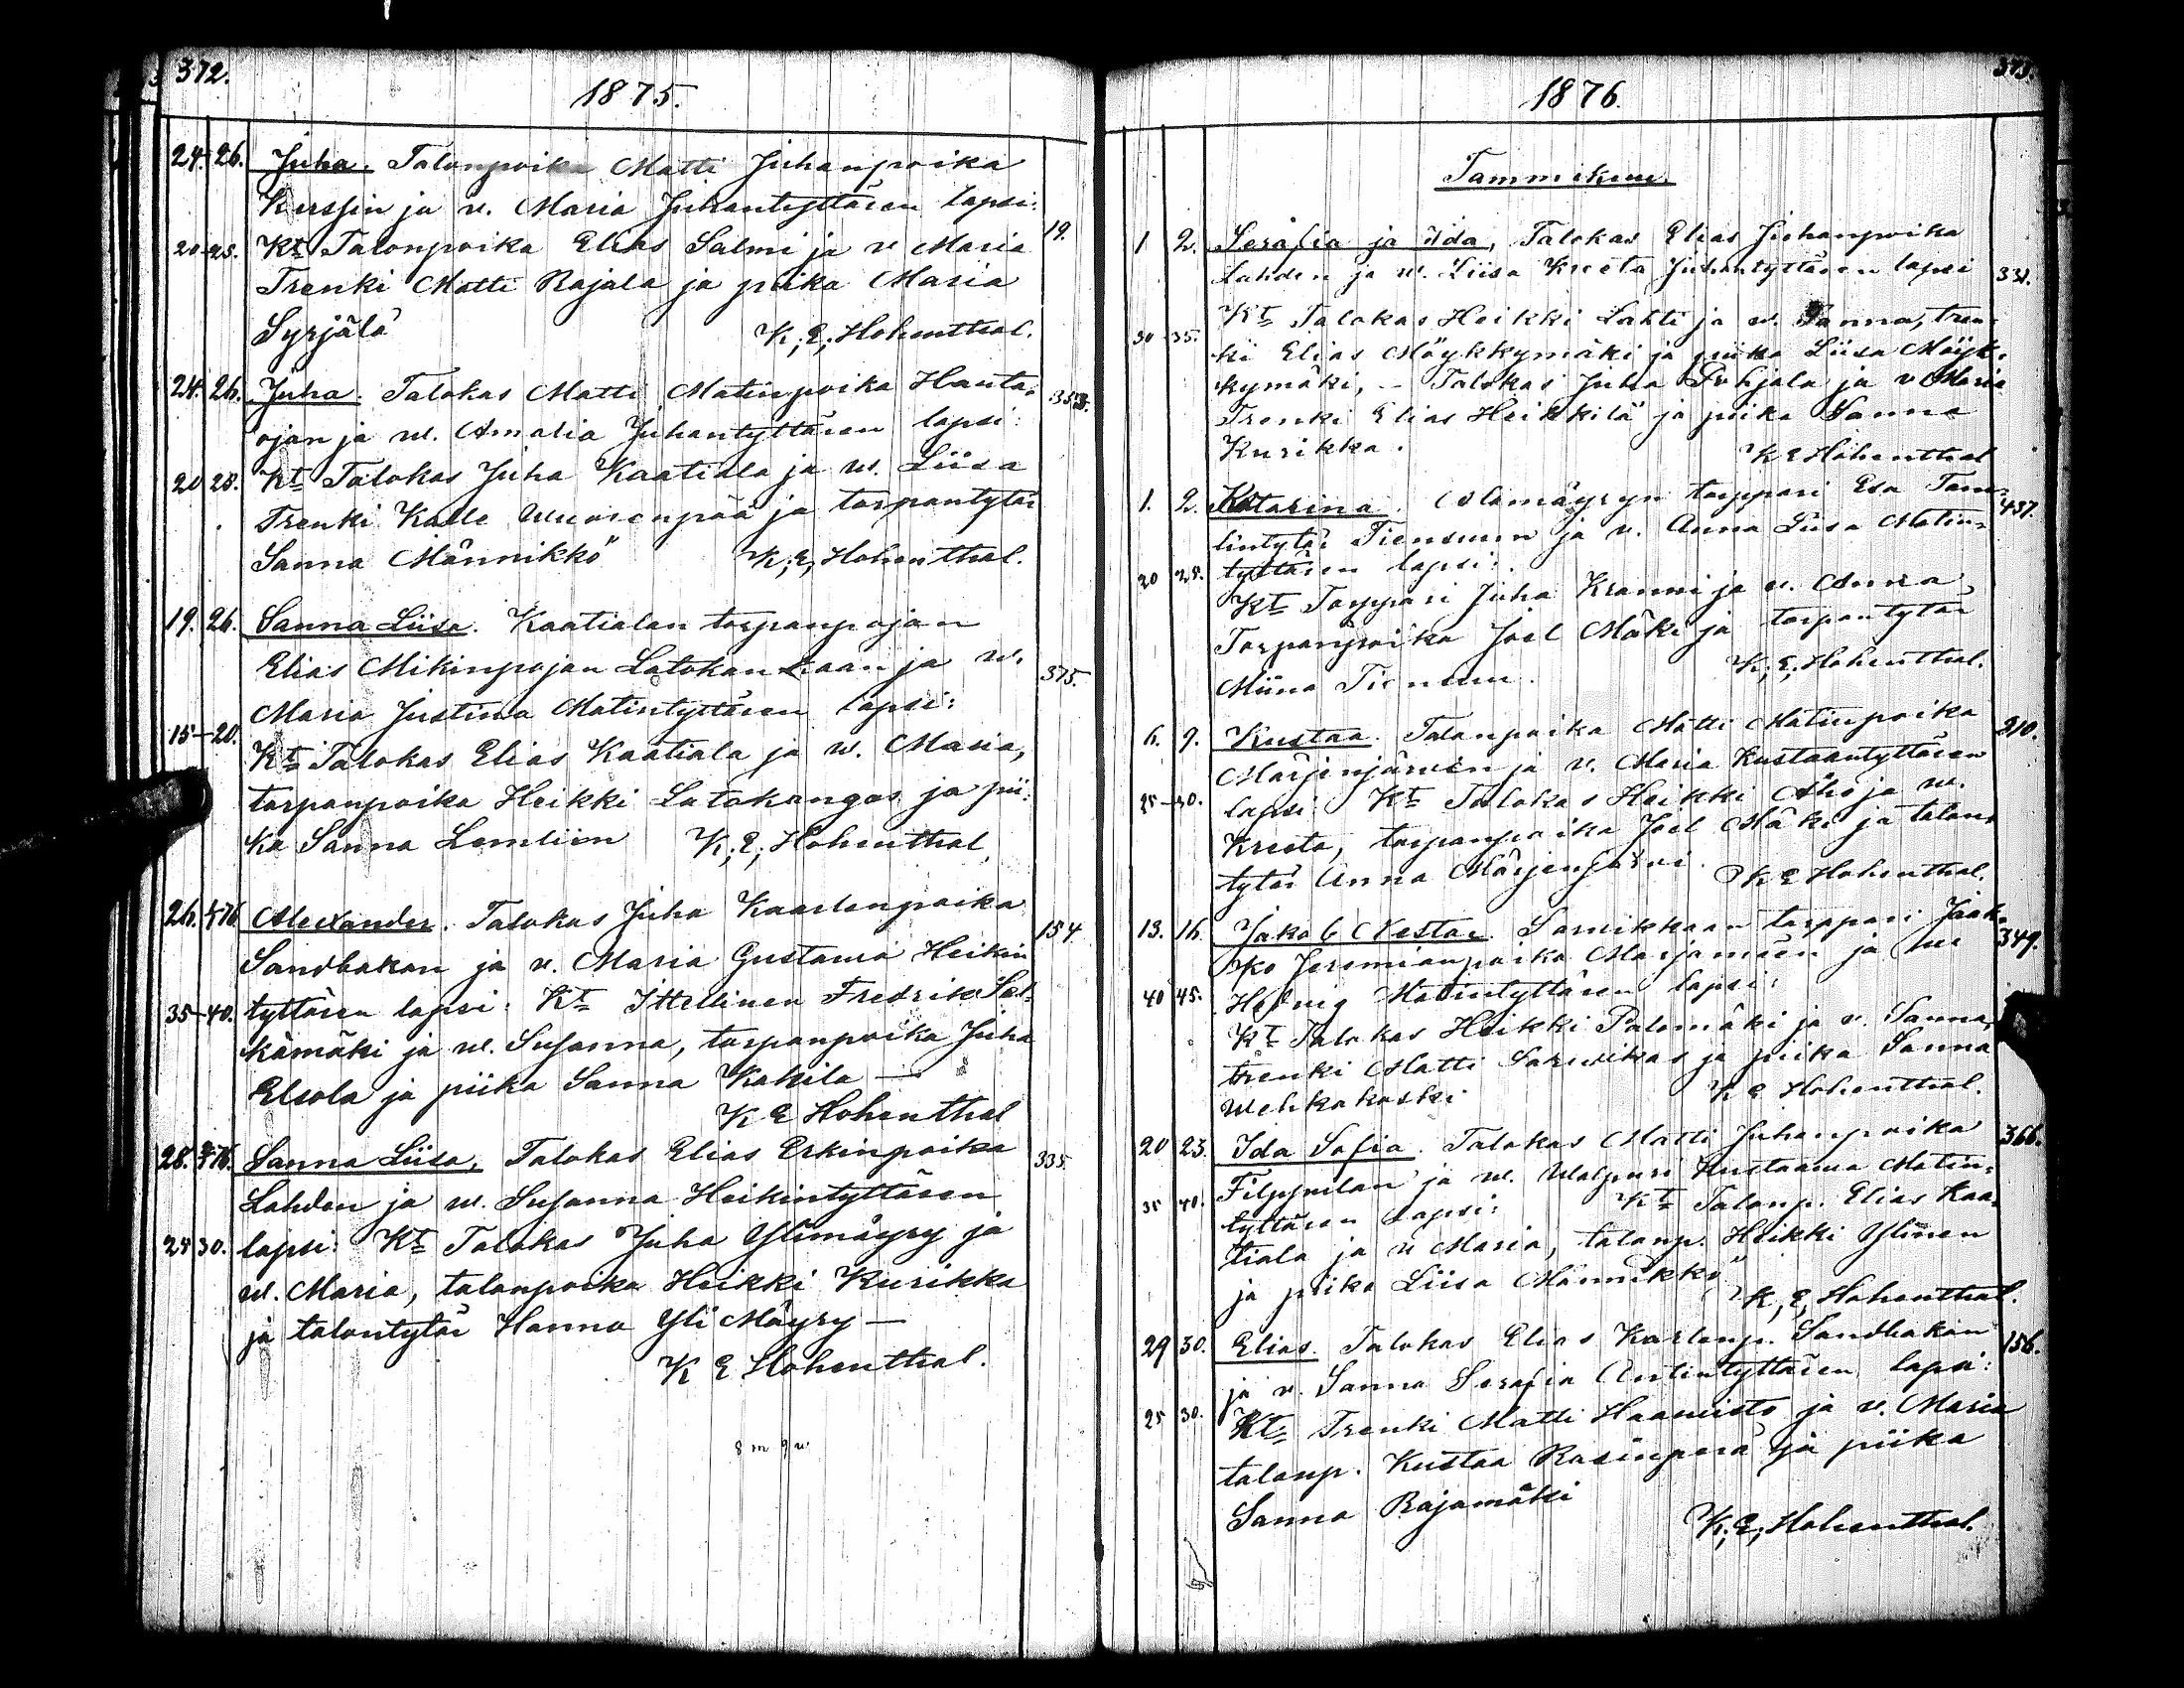 372.
1875.
24-26. Juha. Talonpoika Matti Juhanpoika
Kerssin ja v. Maria Juhantyttären lapsi:
19.
20-25. Kt Talonpoika Elias Salmi ja v Maria
Trenki Matti Rajala ja piika Maria
Syrjälä K; E; Hohenthal.
24. 26. Juha. Talokas Matti Matinpoika Hauta-
353.
ojan ja w. Amalia Juhantyttären lapsi:
20 25. Kt Talokas Juha Kaatiala ja w. Liisa
Trenki Kalle Wuorenpää ja torpantytär
Sanna Männikkö K; E; Hohenthal.
19. 26. Sanna Liisa. Kaatialan torpanpojan
Elias Mikinpojan Latokankaan ja w.
375.
Maria Justina Matintyttären lapsi:
15-20. Kt Talokas Elias Kaatiala ja w. Maria,
torpanpoika Heikki Latokangas ja pii-
ka Sanna Lemliin K; E; Hohenthal
26. 1/1 76 Alexander. Talokas Juha Kaarlenpoika
154
Sandbakan ja v. Maria Gustawa Heikin
35-40. tyttären lapsi: Kt Ittellinen Fredrik Sal-
kämäki ja w. Susanna, torpanpoika Juha
Elsola ja piika Sanna Kakila —
K E Hohenthal
28. 76. Sanna Liisa, Talokas Elias Erkinpoika
335.
Lahden ja w. Susanna Heikintyttären
25 30. lapsi: Kt Talokas Juha Ylimäyry ja
w. Maria, talonpoika Heikki Kurikka
ja talontytär Hanna Yli Mäyry —
K E Hohenthal.
8 m 9 w
373.
1876.
Tammikuu.
1 2. Serafia ja Ida, Talokas Elias Juhanpoika
Lahden ja w. Liisa Kreeta Juhantyttären lapsi
331.
30-35. Kt Talokas Heikki Lahti ja w. Sanna, tren-
ki Elias Möykkymäki ja piika Liisa Möyk-
kymäki, - Talokas Juha Pohjala ja v Maria
Trenki Elias Heikkilä ja piika Sanna
Kurikka. K E Hohenthal
1. 2. Katarina. Alamäyryn torppari Esa Tane-
437.
lintytär Tiensuun ja v. Anna Liisa Matin-
20 25. tyttären lapsi:
Kt Torppari Juha Kranni ja v. Anna
Torpanpoika Joel Mäki ja torpantytär
Miina Tiensuu. K; E; Hohenthal.
6. 9. Kustaa. Talonpoika Matti Matinpoika
210.
Marjenjärwen ja v. Maria Kustaantyttären
25-30. lapsi: Kt Talokas Heikki Aho ja w.
Kreeta, torpanpoika Joel Mäki ja talon-
tytär Anna Marjenjärwi. K E Hohenthal.
13. 16. Jakob Nestor. Sarwikkaan torppari Jaak-
349.
ko Jeremianpoika Marjamäen ja w
40 45. Hedvig Matintyttären lapsi:
Kt Talokas Heikki Palomäki ja v. Sanna,
trenki Matti Sarwikas ja piika Sanna
Wehkakoski K E Hohenthal.
20 23. Ida Sofia. Talokas Matti Juhanpoika
366.
Filppulan ja w. Walpuri Kustaawa Matin-
35 40. tyttären lapsi: Kt Talonp. Elias Kaa-
tiala ja v Maria, talonp. Heikki Ylinen
ja piika Liisa Männikkö
K, E, Hohenthal.
29 30. Elias. Talokas Elias Karlenp. Sandbakan
156.
ja v. Sanna Serafia Antintyttären lapsi:
25 30. Kt Trenki Matti Haawisto ja v. Maria
talonp. Kustaa Rasinperä ja piika
Sanna Rajamäki
K; E; Hohenthal.